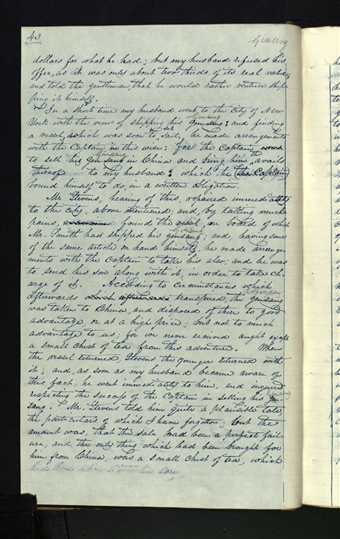 43 Ginseng
dollars for what he had; but my husband refused his
offer, as it was only about two thirds of its real value,
and told the gentleman that he would rather venture ship-
ping it himself.
In a short time my husband went to the city of New
York with the view of shipping his ginseng; and finding
a vessel, which was soon to set sail, he made arrangements
with the Captain in this wise: for the Captain
to sell his ginseng in China and bring him the avails
thereof to my husband; which he (the Captain)
bound himself to do in a written obligation.
Mr. Stevens, hearing of this, repaired immediately
to the city, above mentioned; and, by taking much
pains, found the vessel, on board of which
Mr. Smith had shipped his ginseng; and having some
of the same article on hand himself, he made arrange-
ments with the Captain to take his also; and he was
to send his son along with it, in order to take ch-
arge of it. According to circumstances which
afterwards transpired, the ginseng
was taken to China, and disposed of there to good
advantage, or at a high price; but not to much
advantage to us; for we never received anght except
a small chest of tea from this adventure. When
the vessel returned, Stevens the younger returned with
it; and, as soon as my husband became aware of
this fact, he went immediately to him, and inquired
respecting the success of the Captain in selling his gin-
seng. Mr. Stevens told him quite a plausible tale,
the particulars of which I have forgotten; but the
amount was, that the sale had been a perfect fail-
ure, and the only thing which had been brought for
him from China, was a small chest of tea, which